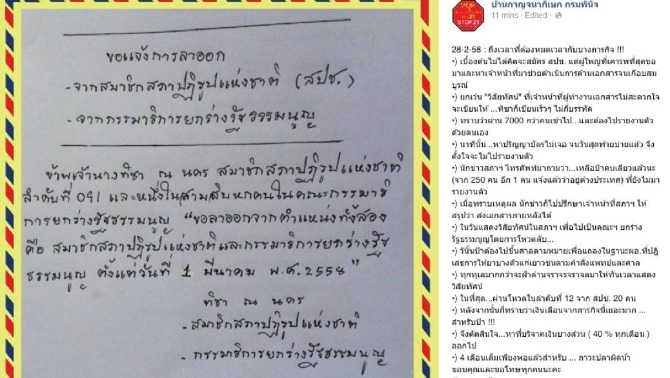 ขอแจ้งการลาออก
- จากสมาชิกสภาปฏิรูปแห่งชาติ (สปช.)
- จากกรรมาธิการยกร่างรัฐธรรมนูญ
ข้าพเจ้านางทิชา ณ นคร สมาชิกสภาปฏิรูปแห่งชาติ
ลำดับที่ 091 และหนึ่งในสามสิบหกคนในคณะกรรมาธิ
การยกร่างรัฐธรรมนูญ "ขอลาออกจากตำแหน่งทั้งสอง
คือ สมาชิกสภาปฏิรูปแห่งชาติและกรรมาธิการยกร่างรัฐ
ธรรมนูญ ตั้งแต่วันที่ 1 มีนาคม พ.ศ. 2558"
ทิชา ณ นคร
- สมาชิกสภาปฏิรูปแห่งชาติ
- กรรมาธิการยกร่างรัฐธรรมนูญ
บ้านกาญจนาภิเษก กรมพินิจ
11 mins · Edited ·
STOP 21
28-2-58 : ถึงเวลาที่ต้องหมดเวลากับบางภารกิจ !!!
•) เบื้องต้นไม่ได้คิดจะสมัคร สปช. แต่ผู้ใหญ่ที่เคารพที่สุดขอ
มาและหาเจ้าหน้าที่มาช่วยดำเนินการด้านเอกสารจนเกือบสม
บูรณ์
•) ยกเว้น "วิสัยทัศน์" ที่เจ้าหน้าที่ผู้ทำงานเอกสารไม่สะดวกใจ
จะเขียนให้ ...ทิชาก็เขียนเร็วๆ ไม่กี่บรรทัด
•) ทราบว่าผ่าน 7000 กว่าคนเข้าไป...และต้องไปรายงานตัว
ด้วยตนเอง
•) นาทีนั้น...หาปริญญาบัตรไม่เจอ จบวันสุดท้ายบ่ายแล้ว จึง
ตั้งใจจะไม่ไปรายงานตัว
•) นักข่าวสภาฯ โทรศัพท์มาถามว่า...เหลือป้าคนเดียวแล้วนะ
(จาก 250 คน อีก 1 คน แจ้งแล้วว่าอยู่ต่างประเทศ) ที่ยังไม่มา
รายงานตัว
•) เมื่อทราบเหตุผล นักข่าวก็ไปปรึกษาเจ้าหน้าที่สภาฯ ให้
สรุปว่า ส่งเอกสารภายหลังได้
•) ในวันแสดงวิสัยทัศน์ในสภาฯ เพื่อไปเป็นคณะฯ ยกร่าง
รัฐธรรมนูญโดยการโหวตลับ...
•) วันนั้นป้าต้องไปขึ้นศาลตามหมายเพื่อแถลงในฐานะผอ.ที่ปฏิ
เสธการให้ยาบางตัวแก่เยาวชนตามคำสั่งแพทย์และศาล
•) ทุกทุเลมากกว่าจะฝ่าด่านจราจรจรจลมาให้ทันเวลาแสดง
วิสัยทัศน์
•) ในที่สุด...ผ่านโหวตในลำดับที่ 12 จาก สปช. 20 คน
•) หลังจากนั้นก็ทราบว่าเงินเดือนจากภารกิจนี้เยอะมาก ...
สำหรับป้า !!!
•) จึงตัดสินใจ...ทาที่บริจาคเงินบางส่วน ( 40 % ทุกเดือน )
ออกไป
•) 4 เดือนเต็มเพียงพอแล้วสำหรับ ... ภาวะปลาผิดน้ำ
ขอบคุณและขอโทษทุกคนนะคะ